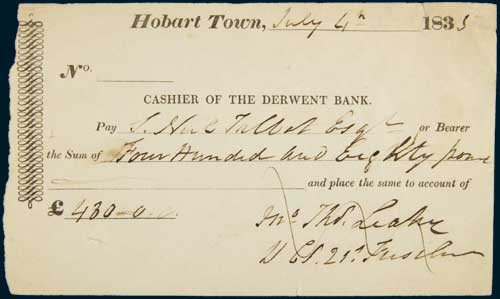 Hobart Town, July 4th 1835
No.
CASHIER OF THE DERWENT BANK.
Pay Talbot Esqr or Bearer
the Sum of Four Hundred and Eighty pound
and place the same to account of
£ 480-0.0.
Thos. Leahy
21st